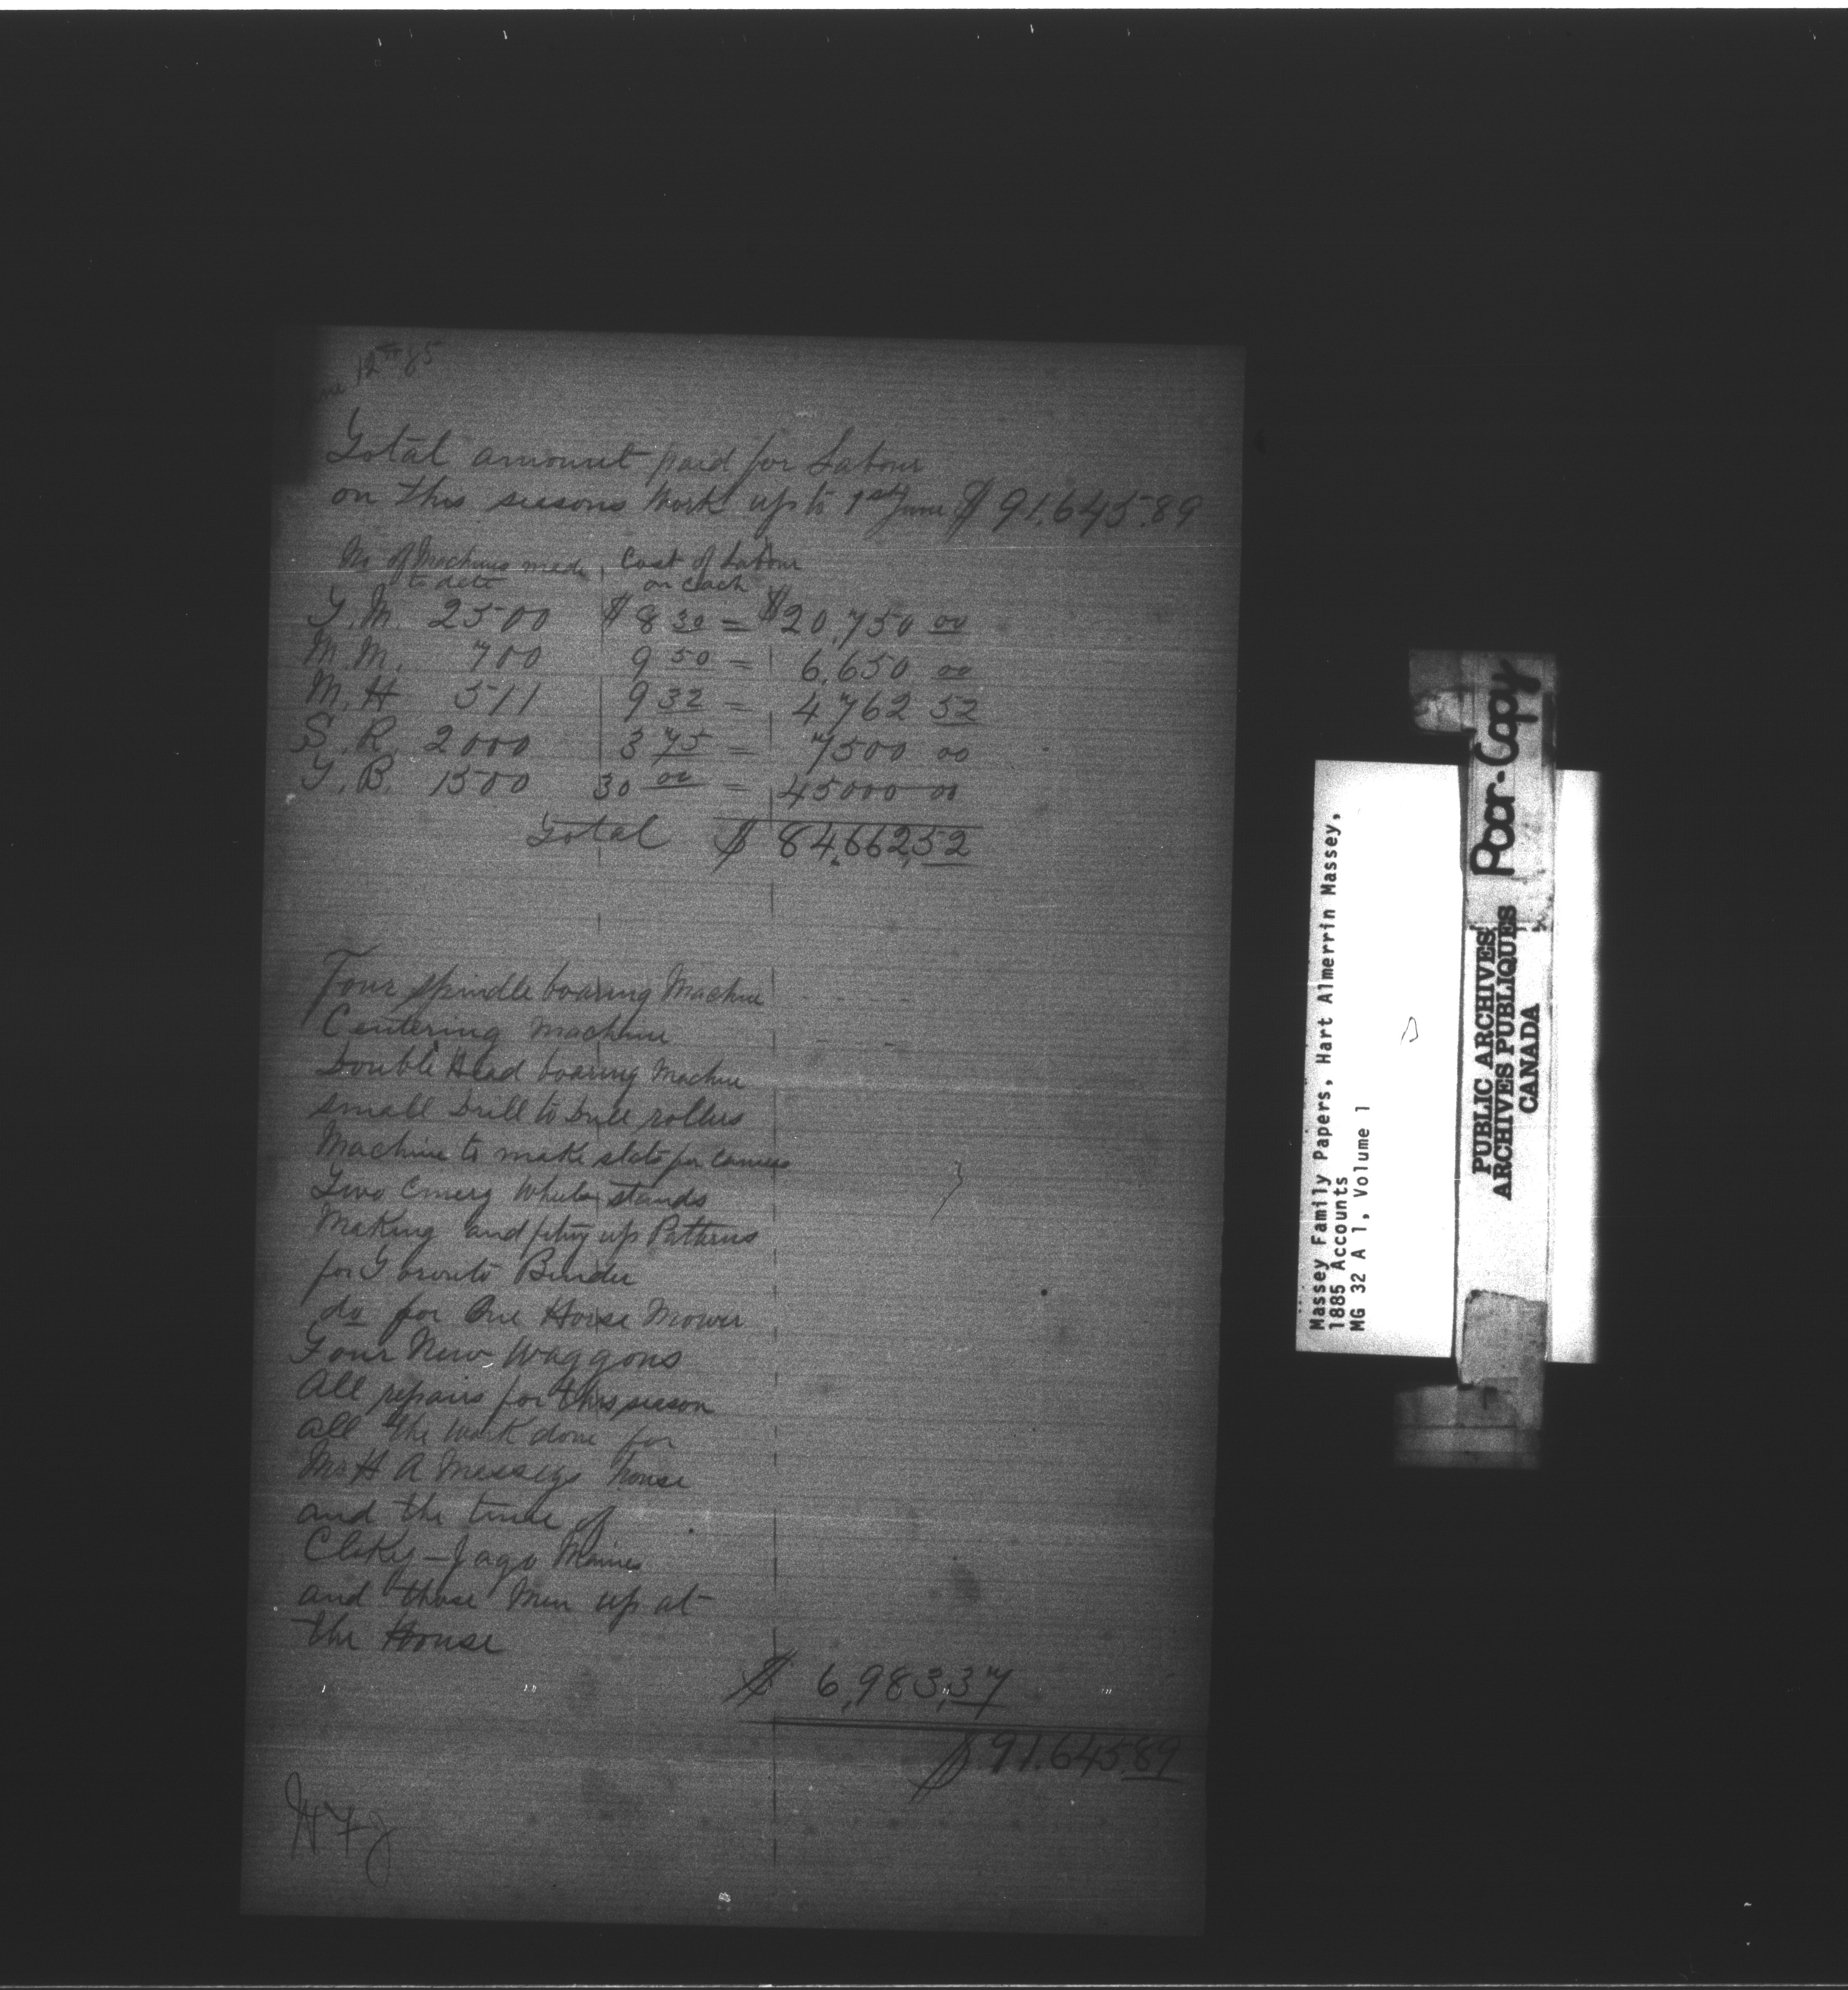 12th 85
Total amount paid for Labour
on this seasons work up to 1st June $ 91,645.89
No of Machines made
to date
Cost of Labour
on each
T. M. 2500 $ 8 30 = $20,750 00
M. M. 700 9 50 = 6,650 00
M. H 511 9 32 = 4762 52
S. R. 2000 3 75 = 7500 00
T. B. 1500 30 00 = 45000 00
Total $ 84,662,52
Four spindle boaring Machine
Centering Machine
Double Head boaring Machine
small Drill to Drill rollers
Machine to make slats for canvass
Two Emery Wheler stands
Making and fiting up Patterns
for Toronto Binder
do for One Horse Mower
Four New Waggons
All repairs for this season
all the work done for
Mr H A Masseys house
and the time of
Jago
and those Men up at
the House
$ 6,983,37
$ 91.645.89
Massey Family Papers, Hart Almerrin Massey,
1885 Accounts
MG 32 A 1, Volume 1
Poor-Copy
PUBLIC ARCHIVES
ARCHIVES PUBLIQUES
CANADA